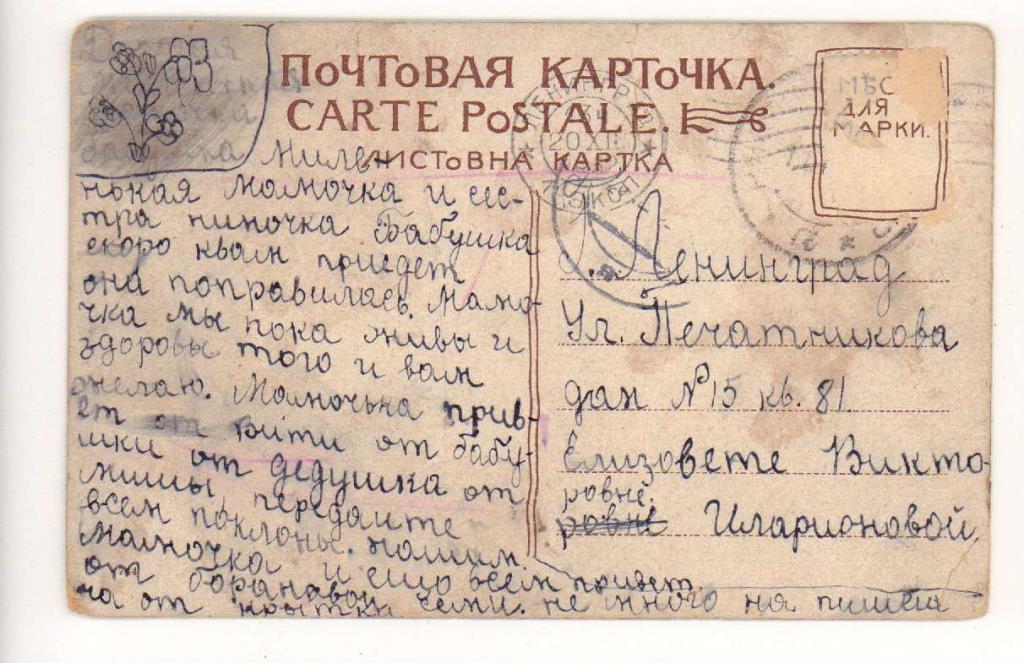 ПОЧТОВАЯ КАРТОЧКА.
CARTE POSTALE.
ЛИСТОВНА КАРТКА
МѢС
ДЛЯ
МАРКИ.
20 XII
Милен
ькая мамочка и сес-
тра ниночка Бабушка
скоро квам приедет
она поправилась. Мамо-
чка мы пока живы и
здоровы того и вам
желаю. Мамочька прив-
ет от вити от бабу-
шки от дедушка от
мишы передаите
всем поклоны. нашим.
Мамочка и ещо всем привет
от барановой
ча от семи. не много на пишеш
г. Ленинград
Ул. Печатникова
дан № 15 кв. 81.
Елизовете Викто-
ровне.
ровне Иларионовой.